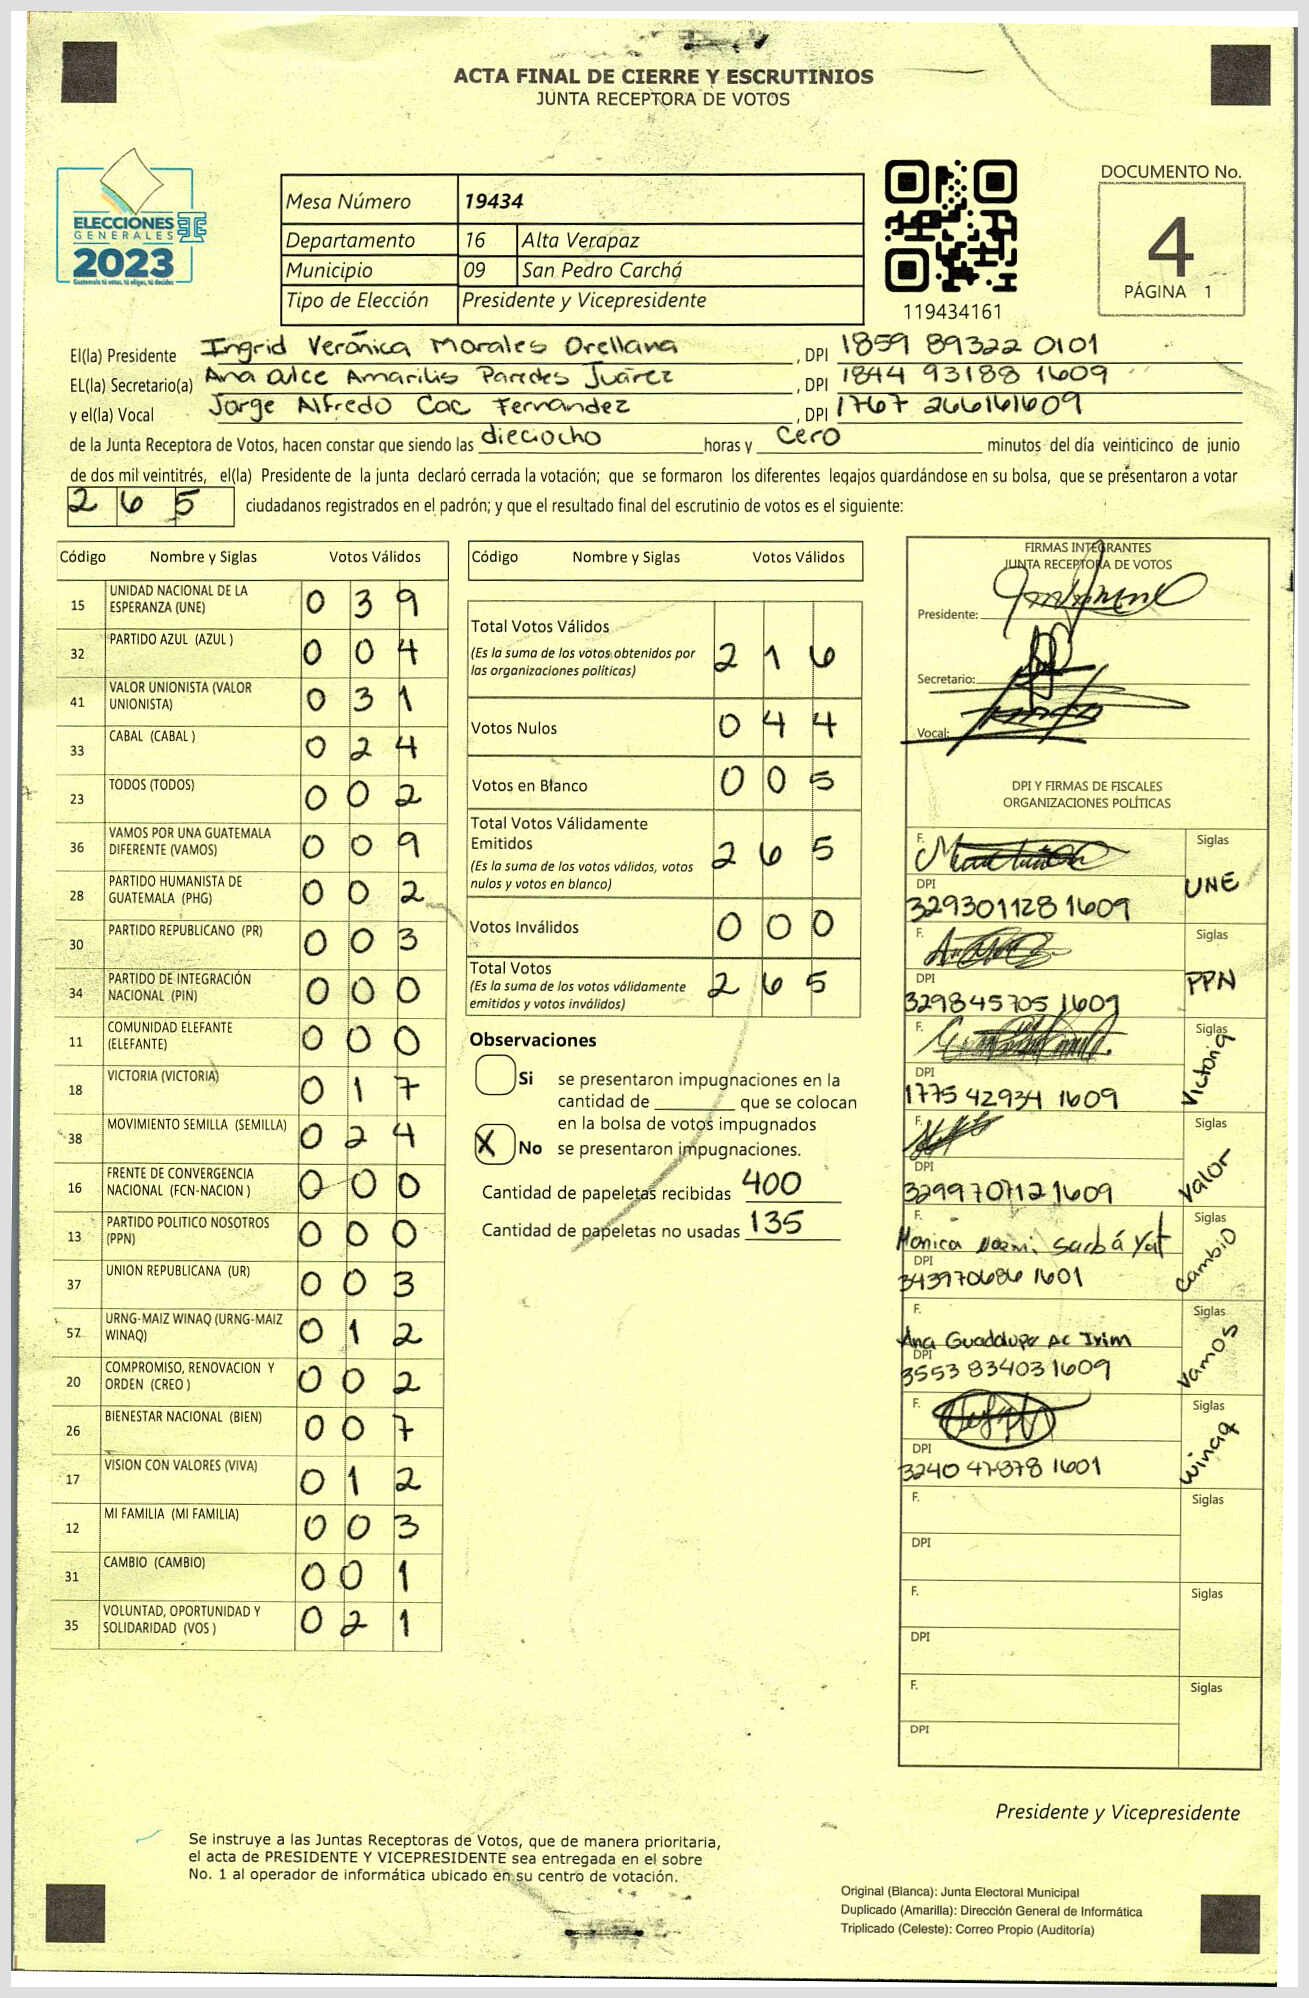 ACTA FINAL DE CIERRE Y ESCRUTINIOS
JUNTA RECEPTORA DE VOTOS
ELECCIONES
GENERALES
2023
Guatemala tú votas, tú eliges, tú decides
Mesa Número 19434
Departamento 16 Alta Verapaz
Municipio 09 San Pedro Carchá
Tipo de Elección Presidente y Vicepresidente
119434161
DOCUMENTO No.
4
PÁGINA 1
El(la) Presidente Ingrid Verónica Morales Orellana, DPI 1859 89322 0101
EL(la) Secretario(a) Ana Alce Amarilis Paredes Juárez, DPI 1844 93188 1609
y el(la) Vocal Jorge Alfredo Cac Fernandez, DPI 1767 266161609
de la Junta Receptora de Votos, hacen constar que siendo las dieciocho horas y cero minutos del día veinticinco de junio
de dos mil veintitrés, el(la) Presidente de la junta declaró cerrada la votación; que se formaron los diferentes legajos guardándose en su bolsa, que se presentaron a votar
265 ciudadanos registrados en el padrón; y que el resultado final del escrutinio de votos es el siguiente:
Código Nombre y Siglas Votos Válidos
15 UNIDAD NACIONAL DE LA ESPERANZA (UNE) 0 3 9
32 PARTIDO AZUL (AZUL ) 0 0 4
41 VALOR UNIONISTA (VALOR UNIONISTA) 0 3 1
33 CABAL (CABAL ) 0 2 4
23 TODOS (TODOS) 0 0 2
36 VAMOS POR UNA GUATEMALA DIFERENTE (VAMOS) 0 0 9
28 PARTIDO HUMANISTA DE GUATEMALA (PHG) 0 0 2
30 PARTIDO REPUBLICANO (PR) 0 0 3
34 PARTIDO DE INTEGRACIÓN NACIONAL (PIN) 0 0 0
11 COMUNIDAD ELEFANTE (ELEFANTE) 0 0 0
18 VICTORIA (VICTORIA) 0 1 7
38 MOVIMIENTO SEMILLA (SEMILLA) 0 2 4
16 FRENTE DE CONVERGENCIA NACIONAL (FCN-NACION ) 0 0 0
13 PARTIDO POLITICO NOSOTROS (PPN) 0 0 0
37 UNION REPUBLICANA (UR) 0 0 3
57 URNG-MAIZ WINAQ (URNG-MAIZ WINAQ) 0 1 2
20 COMPROMISO, RENOVACION Y ORDEN (CREO ) 0 0 2
26 BIENESTAR NACIONAL (BIEN) 0 0 7
17 VISION CON VALORES (VIVA) 0 1 2
12 MI FAMILIA (MI FAMILIA) 0 0 3
31 CAMBIO (CAMBIO) 0 0 1
35 VOLUNTAD, OPORTUNIDAD Y SOLIDARIDAD (VOS ) 0 2 1
Código Nombre y Siglas Votos Válidos
Total Votos Válidos 2 1 6
(Es la suma de los votos obtenidos por
las organizaciones políticas)
Votos Nulos 0 4 4
Votos en Blanco 0 0 5
Total Votos Válidamente
Emitidos 2 6 5
(Es la suma de los votos válidos, votos
nulos y votos en blanco)
Votos Inválidos 0 0 0
Total Votos 2 6 5
(Es la suma de los votos válidamente
emitidos y votos inválidos)
Observaciones
Si se presentaron impugnaciones en la
cantidad de ________ que se colocan
en la bolsa de votos impugnados
X No se presentaron impugnaciones.
Cantidad de papeletas recibidas 400
Cantidad de papeletas no usadas 135
FIRMAS INTEGRANTES
JUNTA RECEPTORA DE VOTOS
Presidente:
Secretario:
Vocal:
DPI Y FIRMAS DE FISCALES
ORGANIZACIONES POLÍTICAS
F. Siglas
DPI UNE
329301128 1609
F. Siglas
DPI PPN
329845705 1609
F. Siglas
DPI Victoria
1775 42934 1609
F. Siglas
DPI Valor
329970712 1609
F. Siglas
Monica Noemi Sacbá Yat
DPI cambio
343970686 1601
F. Siglas
Ana Guadalupe Ac Irim
DPI vamos
3553 83403 1609
F. Siglas
DPI winaq
3240 47878 1601
F. Siglas
DPI
F. Siglas
DPI
F. Siglas
DPI
Presidente y Vicepresidente
Se instruye a las Juntas Receptoras de Votos, que de manera prioritaria,
el acta de PRESIDENTE Y VICEPRESIDENTE sea entregada en el sobre
No. 1 al operador de informática ubicado en su centro de votación.
Original (Blanca): Junta Electoral Municipal
Duplicado (Amarilla): Dirección General de Informática
Triplicado (Celeste): Correo Propio (Auditoría)